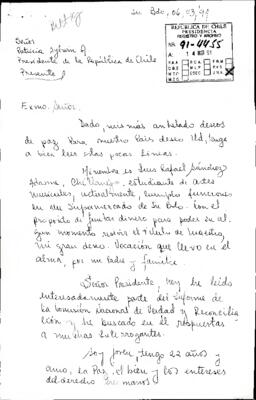 Sn Bdo, 06.03.91
REPUBLICA DE CHILE
PRESIDENCIA
REGISTRO Y ARCHIVO
NR. 91-4455
A: 14 MAR 91
Señor
Patricio Aylwin A
Presidente de la República de Chile
Presente
Exmo. Señor.
Dado, mis más anhelado deseos
de paz para nuestro País deseo Ud, tenga
a bien leer estas pocas líneas.
Mi nombre es Luis Rafael Sánchez
estudiante de artes
musicales, actualmente, cumplo funciones
en un Supermercado de Sn Bdo. Con el
propósito de juntar dinero para poder en al-
gún momento recibir el título de Maestro,
mi gran deseo. Vocación que llevo en el
alma, por mi Padre y familia
Señor Presidente, hoy he leído
interesadamente parte del Informe de
la Comisión Nacional de Verdad y Reconcilia
ción y he buscado en él respuestas
a muchas interrogantes.
Soy joven, tengo 22 años y
amo, la Paz, el bien y los intereses
del derecho humanos